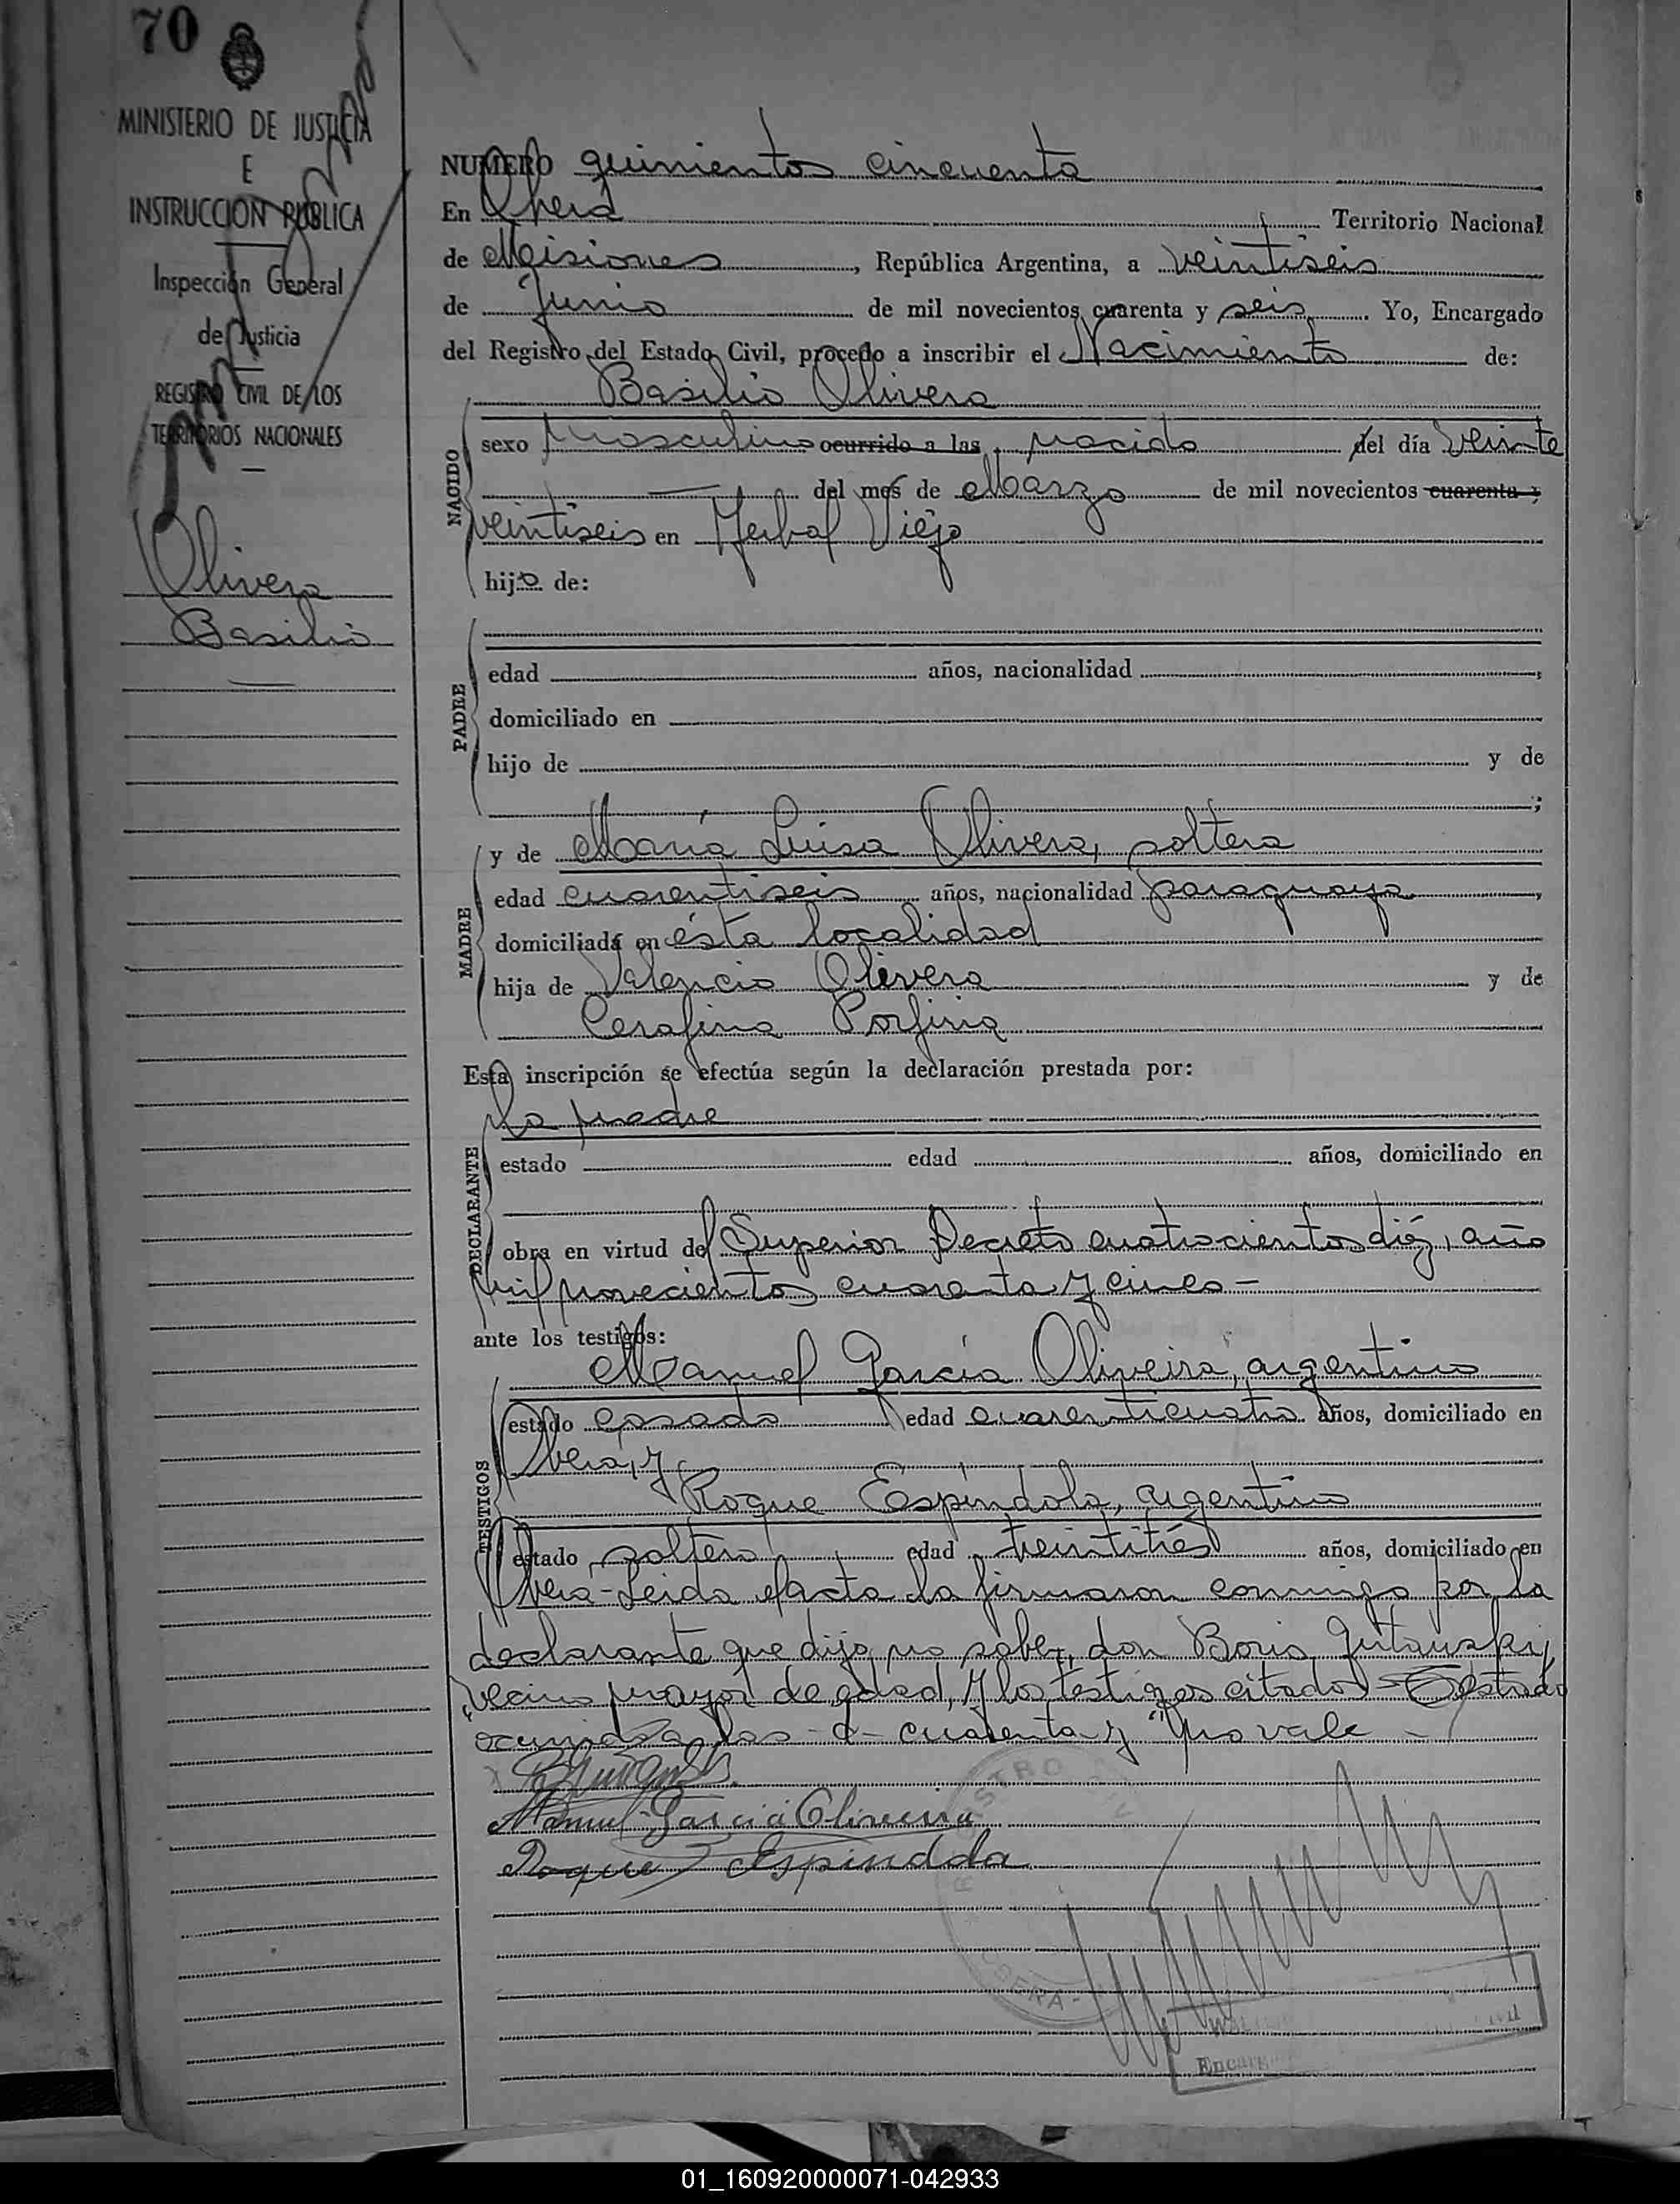 70
MINISTERIO DE JUSTICIA
E
INSTRUCCION PUBLICA
Inspección General
de Justicia
REGISTRO CIVIL DE LOS
TERRITORIOS NACIONALES
Olivera
Basilio
NUMERO quinientos cincuenta
En Oberá Territorio Nacional
de Misiones, República Argentina, a veintiseis
de Junio de mil novecientos cuarenta y seis. Yo, Encargado
del Registro del Estado Civil, procedo a inscribir el Nacimiento de:
Basilio Olivera
NACIDO
sexo masculino ocurrido a las nacido del día veinte
del mes de Marzo de mil novecientos cuarenta y
veintiseis en Yerbal Viejo
hijo de:
PADRE
edad años, nacionalidad ;
domiciliado en
hijo de y de
;
MADRE
y de María Luisa Olivera, soltera
edad cuarentiseis años, nacionalidad paraguaya,
domiciliada en ésta localidad
hija de Valencio Olivera y de
Cerafina Porfiria
Esta inscripción se efectúa según la declaración prestada por:
DECLARANTE
la madre
estado edad años, domiciliado en
obra en virtud del Superior Decreto cuatrocientos diéz, año
mil novecientos cuarenta y cinco -
ante los testigos:
TESTIGOS
Manuel García Oliveira, argentino
estado casado edad cuarenticuatro años, domiciliado en
Oberá, y
Roque Espíndola, argentino
estado soltero edad treintitrés años, domiciliado en
Oberá - Leida el acta la firmaron conmigo por la
declarante que dijo no saber, don Boris
vecino mayor de edad, y los testigos citados - Testado
ocurrido a las - d - cuarenta y "no vale -
Manuel García Oliveira
Roque Espindola
REGISTRO
OBERA -
Encarg
01_160920000071-042933